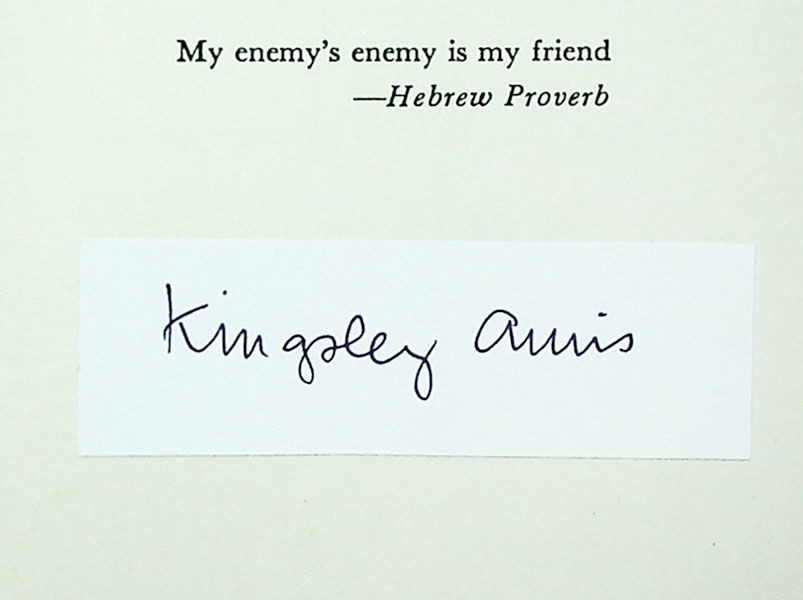 My enemy's enemy is my friend
—Hebrew Proverb
Kingsley Amis